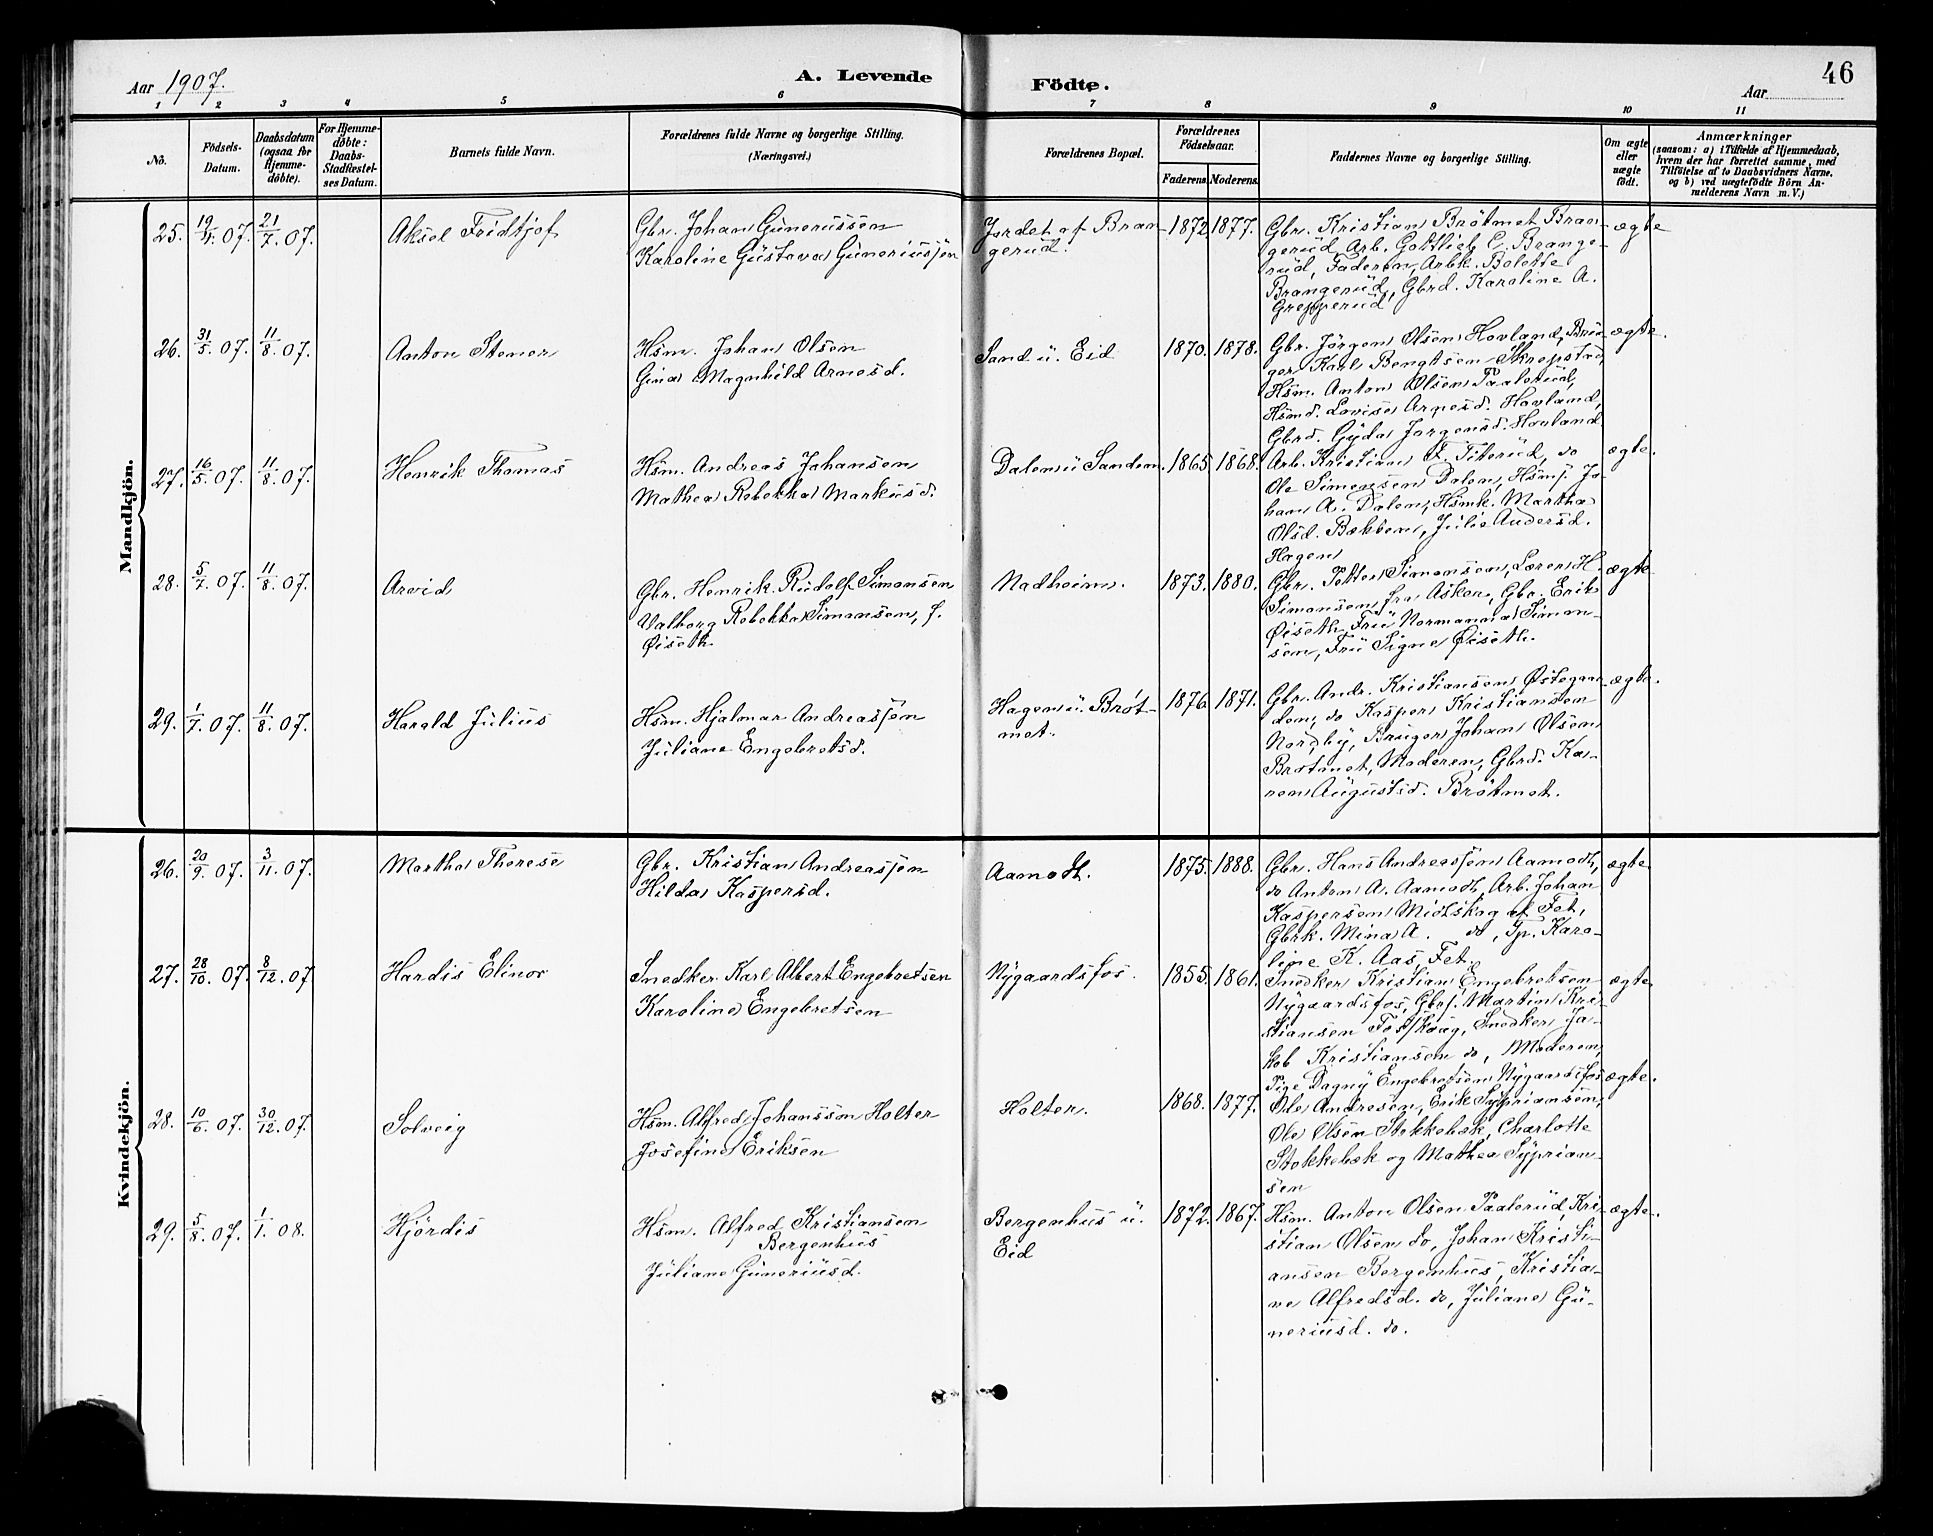 Aar 1907.
A. Levende
Födte.
46
Aar
1 2 3 4 5 6 7 8 9 10 11
Nô.
Födsels-
Datum.
Daabsdatum
(ogsaa for
Hjemme-
döbte).
For Hjemme-
döbte:
Daabs-
Stadfæstel-
ses Datum.
Barnets fulde Navn.
Forældrenes fulde Navne og borgerlige Stilling.
(Næringsvei.)
Forældrenes Bopæl.
Forældrenes
Födselsaar.
Faderens. Moderens.
Faddernes Navne og borgerlige Stilling.
Om ægte
eller
uægte
födt.
Anmærkninger
(saasom: a) i Tilfælde af Hjemmedaab,
hvem der har forrettet samme, med
Tilföielse af to Daabsvidners Navne.
og b) ved uægtefödte Börn An-
melderens Navn m. V.)
Mandkjön.
25. 21/7 07. Aksel Fridtjof
Gbr. Johan Gunerussen
Karoline Gustava Guneriussen
Jordet af Bran-
gerud.
1872 1877.
Gbr. Kristian Brøtmet Bran-
gerud, Arb. Gottlieb C. Brange-
rud, Faderen, Arbk. Bolette
Brangerud, Gbrd. Karoline A.
Grepperud
ægte
26. 31/5 07. 11/8 07. Anton Stener
Hsm. Johan Olsen
Gina Magnhild Arnesd.
Sand u. Eid
1870. 1878.
Gbr. Jörgen Olsen Hovland, Bru-
ger Karl Bengtsen Skrepstad,
Hsm. Anton Olsen Paalerud,
Hsmd. Lovise Arnesd. Hovland,
Gbrd. Gyda Jorgensd. Hovland
ægte.
27. 16/5 07. 11/8 07. Henrik Thomas
Hsm. Andreas Johansen
Mathea Rebekka Markusd.
Dalen u Sanden.
1865 1868.
Arb. Kristian F. Titerud, do
Ole Simensen Dalen, Hsms. Jo-
han A. Dalen, Hsmk. Martha
Olsd. Bækken, Julie Andersd.
Hagen
ægte.
28. 5/7 07. 11/8 07. Arvid
Gbr. Henrik Rudolf Simensen
Valborg Rebekka Simensen, f.
Øiseth
Nadheim.
1873. 1880.
Gbr. Petter Simensen, Lærer H.
Simensen fra Asker, Gbr. Erik
Øiseth, Fru Normanna Simen-
sen, Fru Signe Øiseth.
ægte
29. 1/7 07. 11/8 07. Harald Julius
Hsm. Hjalmar Andreassen
Juliane Engebretsd.
Hagen u. Brøt-
met.
1876 1871.
Gbr. Andr. Kristiansen Østegaar-
den, do Kasper Kristiansen
Nordby, Bruger Johan Olsen
Brøtmet, Moderen, Gbrd. Ka-
ren Augustsd. Brøtmet.
ægte.
Kvindekjön.
26. 20/9 07. 3/11 07. Martha Therese
Gbr. Kristian Andreassen
Hilda Kaspersd.
Aamodt.
1875. 1888.
Gbr. Hans Andreassen Aamodt,
do Anton A. Aamodt, Arb. Johan
Kaspersen Midtskog af Fet,
Gbrk. Mina A. do, Tp. Karo-
line K. Aas, Fet.
ægte
27. 28/10 07. 8/12 07 Hardis Elinor
Snedker Karl Albert Engebretsen
Karoline Engebretsen
Nygaardsfos.
1855. 1861.
Snedker Kristian Engebretsen
Nygaardsfos, Gbrs. Martin Kri-
stiansen Fosskaug, Snedker Ja-
kob Kristiansen do, Moderen,
Pige Dagny Engebretsen Nygaardsfos
ægte
28. 10/6 07. 30/12 07. Solveig
Hsm. Alfred Johanssen Holter
Josefine Eriksen
Holter.
1868. 1877.
Ole Andresen, Erik Sypriansen,
Ole Olsen Stokkebæk, Charlotte
Stokkebæk og Mathea Syprian-
sen
ægte.
29. 5/8 07. 1/1 08. Hjördis
Hsm. Alfred Kristiansen
Bergenhus
Juliane Guneriusd.
Bergenhus u.
Eid
1872. 1867.
Hsm. Anton Olsen Paalerud, Kri-
stian Olsen do, Johan Kristi-
ansen Bergenhus, Kristia-
ne Alfredsd. do, Juliane Gu-
neriusd. do.
ægte.